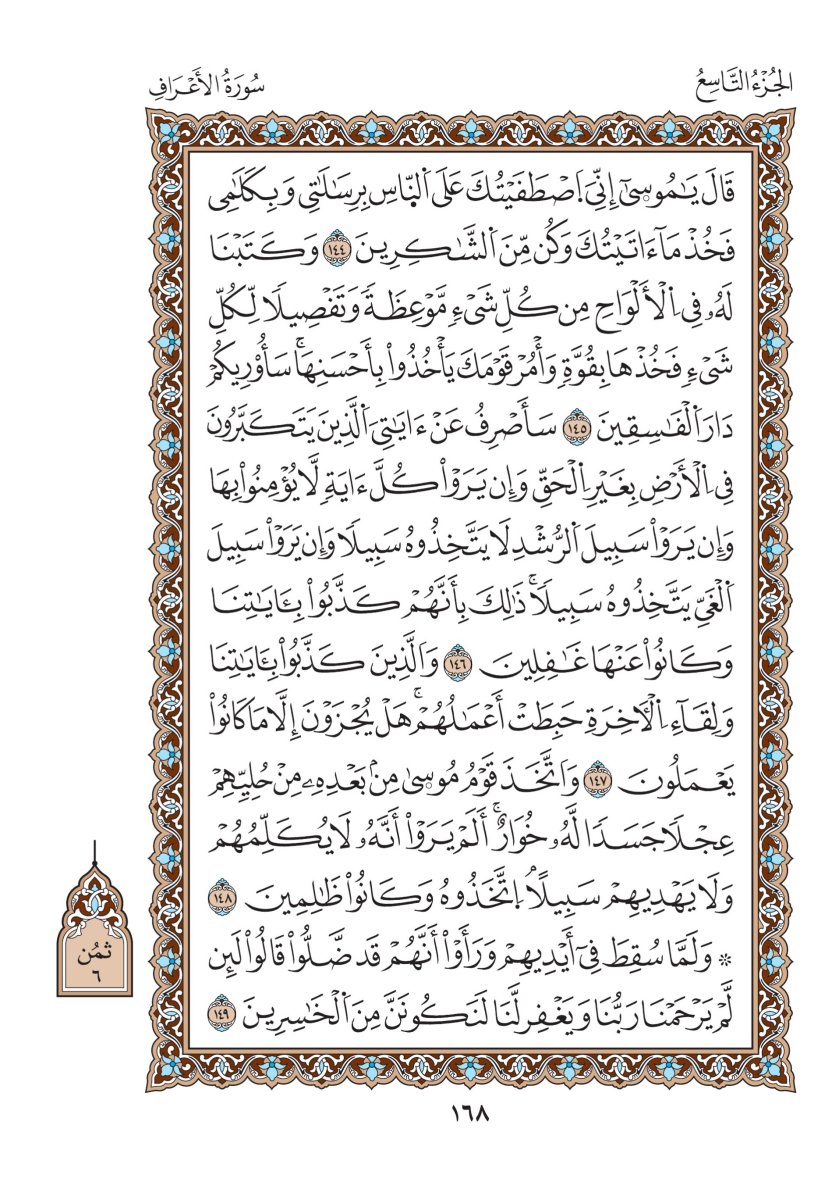 الجُزْءُ التَّاسِعُ
سُورَةُ الأَعْرَافِ
قَالَ يَٰمُوسَىٰٓ إِنِّيَ اَ۪صْطَفَيْتُكَ عَلَى اَ۬لنَّاسِ بِرِسَٰلَٰتِي وَبِكَلَٰمِي
فَخُذْ مَآ ءَاتَيْتُكَ وَكُن مِّنَ اَ۬لشَّٰكِرِينَ ١٤٤ وَكَتَبْنَا
لَهُۥ فِي اِ۬لْأَلْوَاحِ مِن كُلِّ شَيْءٖ مَّوْعِظَةٗ وَتَفْصِيلٗا لِّكُلِّ
شَيْءٖ فَخُذْهَا بِقُوَّةٖ وَأْمُرْ قَوْمَكَ يَأْخُذُواْ بِأَحْسَنِهَاۚ سَأُوْرِيكُمْ
دَارَ اَ۬لْفَٰسِقِينَ ١٤٥ سَأَصْرِفُ عَنْ ءَايَٰتِيَ اَ۬لَّذِينَ يَتَكَبَّرُونَ
فِي اِ۬لْأَرْضِ بِغَيْرِ اِ۬لْحَقِّ وَإِن يَرَوْاْ كُلَّ ءَايَةٖ لَّا يُؤْمِنُواْ بِهَا
وَإِن يَرَوْاْ سَبِيلَ اَ۬لرُّشْدِ لَا يَتَّخِذُوهُ سَبِيلٗا وَإِن يَرَوْاْ سَبِيلَ
اَ۬لْغَيِّ يَتَّخِذُوهُ سَبِيلٗاۚ ذَٰلِكَ بِأَنَّهُمْ كَذَّبُواْ بِـَٔايَٰتِنَا
وَكَانُواْ عَنْهَا غَٰفِلِينَ ١٤٦ وَالَّذِينَ كَذَّبُواْ بِـَٔايَٰتِنَا
وَلِقَآءِ اِ۬لْأٓخِرَةِ حَبِطَتْ أَعْمَٰلُهُمْۚ هَلْ يُجْزَوْنَ إِلَّا مَا كَانُواْ
يَعْمَلُونَ ١٤٧ وَاَتَّخَذَ قَوْمُ مُوسَىٰ مِنۢ بَعْدِهِۦ مِنْ حُلِيِّهِمْ
عِجْلٗا جَسَدٗا لَّهُۥ خُوَارٌۚ أَلَمْ يَرَوْاْ أَنَّهُۥ لَا يُكَلِّمُهُمْ
وَلَا يَهْدِيهِمْ سَبِيلًاۘ اِ۪تَّخَذُوهُ وَكَانُواْ ظَٰلِمِينَ ١٤٨
۞ وَلَمَّا سُقِطَ فِيٓ أَيْدِيهِمْ وَرَأَوْاْ أَنَّهُمْ قَد ضَّلُّواْ قَالُواْ لَئِن
لَّمْ يَرْحَمْنَا رَبُّنَا وَيَغْفِر لَّنَا لَنَكُونَنَّ مِنَ اَ۬لْخَٰسِرِينَ ١٤٩
ثمُن
٦
١٦٨